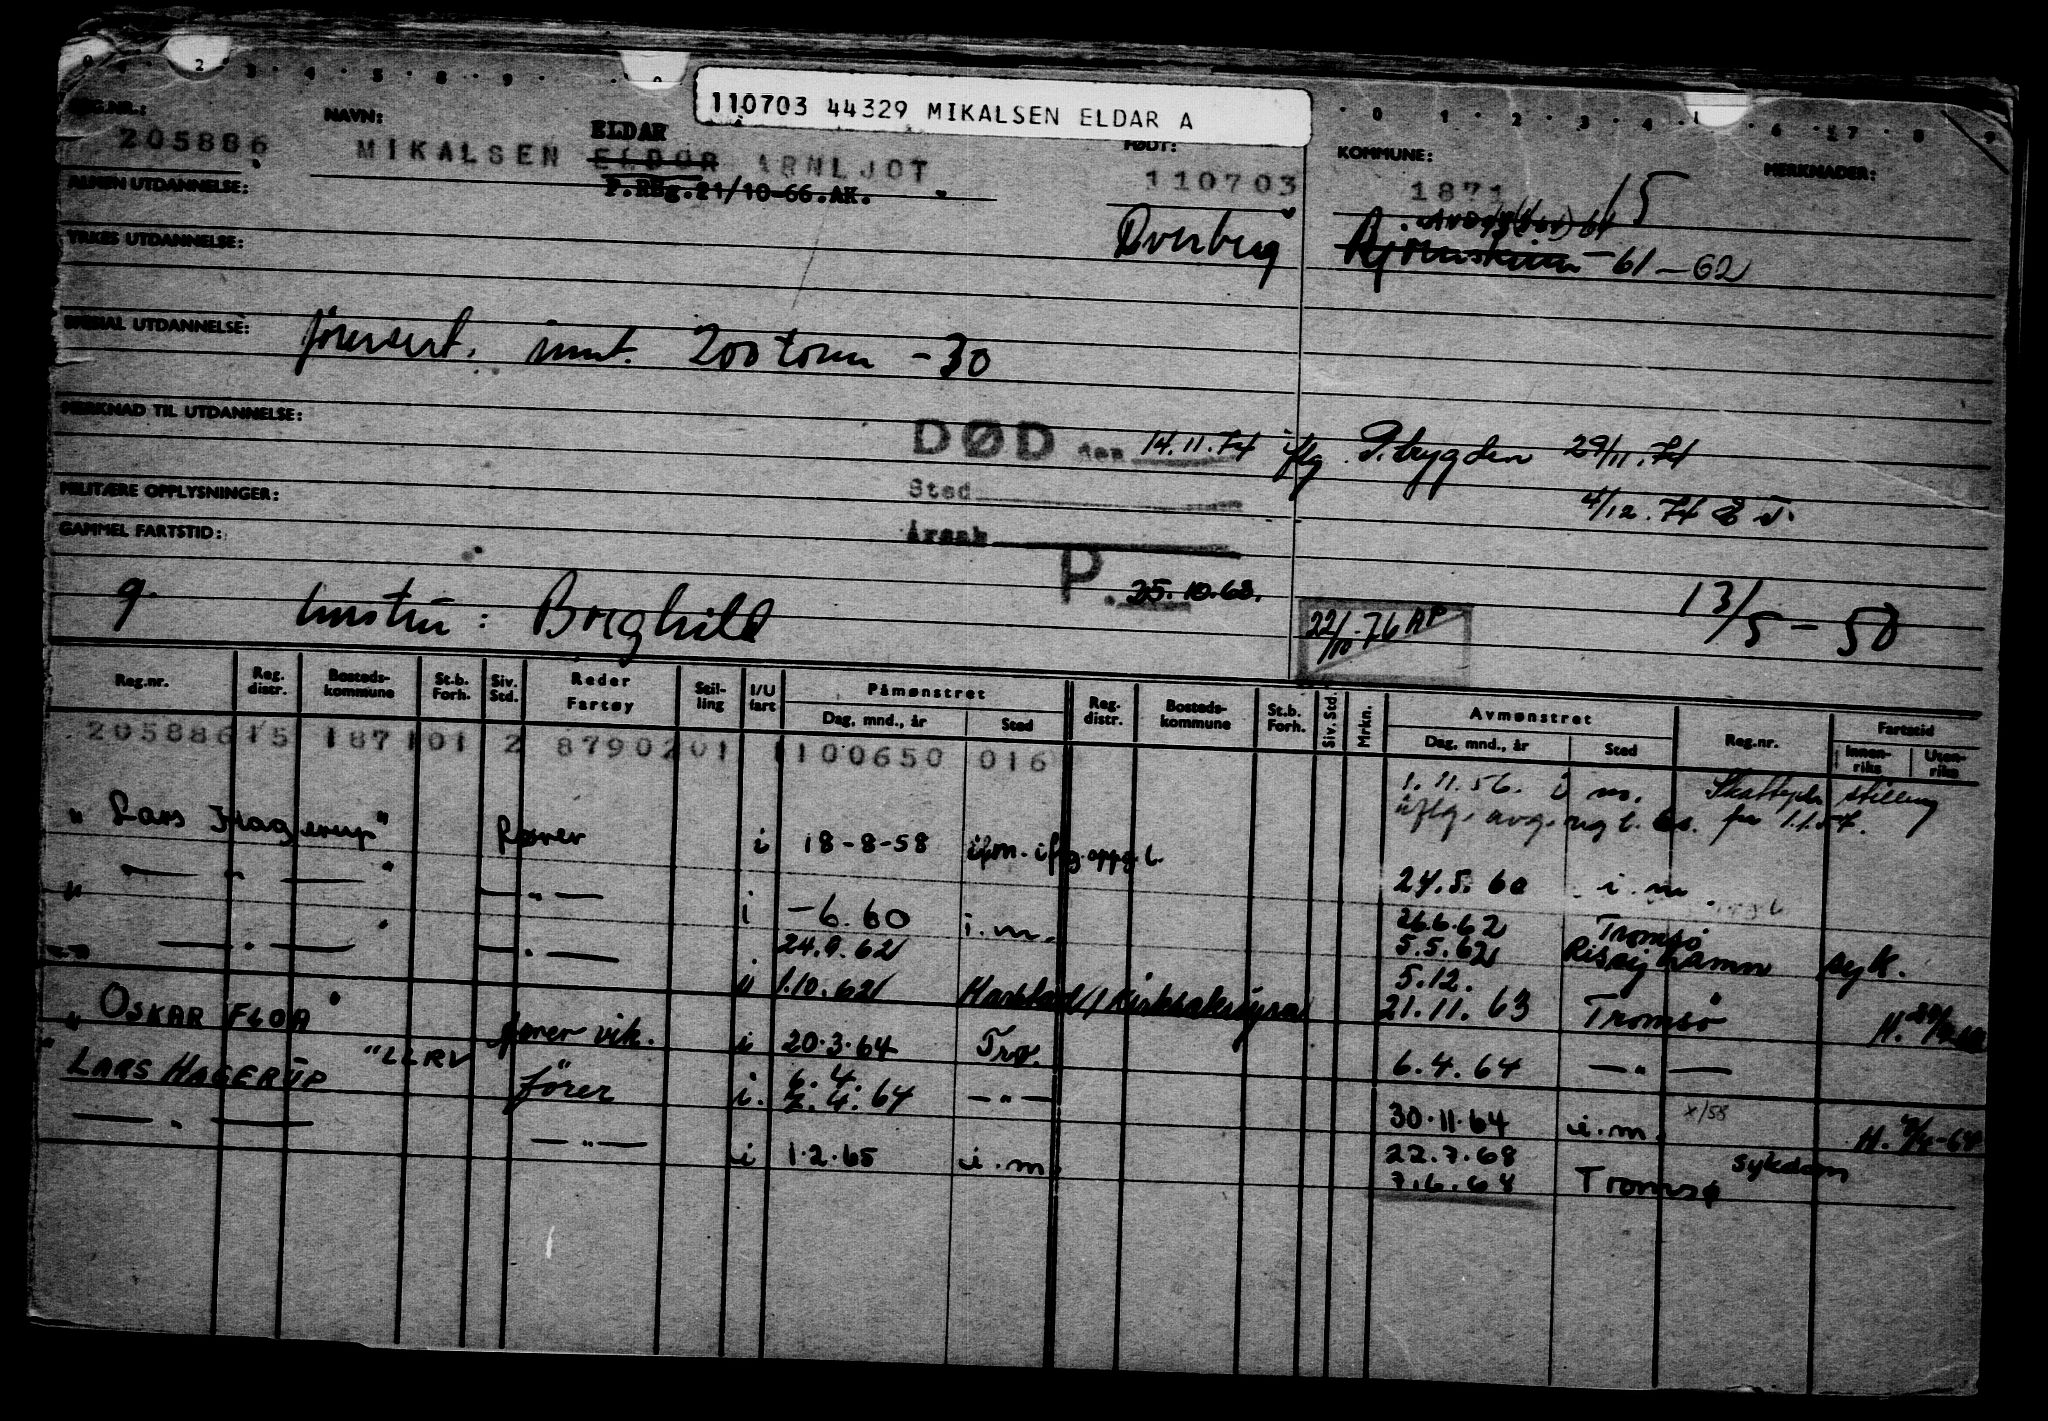 110703 44329 MIKALSEN ELDAR A
REG.NR.: NAVN: FØDT: KOMMUNE: MERKNADER:
ELDAR
205886 MIKALSEN ELDOR ARNLJOT 110703 1871 15
P.Reg.21/10-66.AK.
ALMEN UTDANNELSE:
Dverberg -61-62
YRKES UTDANNELSE:
SPESIAL UTDANNELSE: førersert. innt. 200 tonn -30
MERKNAD TIL UTDANNELSE:
DØD den 14.11.74 iflg P.trygden 29/11.74
Sted
4/12.74
MILITÆRE OPPLYSNINGER:
Årsak
GAMMEL FARTSTID:
P. 25.10.68.
g. hustru: Borghild
22/10.76 AP
13/5-50
Reg.nr. Reg. distr. Bosteds-kommune St.b. Forh. Siv. Std. Reder Fartøy Stil-ling I/U fart Påmønstret Dag, mnd., år Sted Reg. distr. Bosteds-kommune St.b. Forh. Siv. Std. Mrkn. Avmønstret Dag, mnd., år Sted Reg.nr. Fartstid Innen-riks Uten-riks
205886 15 1871 01 2 8790201 1 100650 016
1.11.56. i m. Skattepl. stilling
iflg. avg. fra 1.1.57.
" Lars Hagerup" fører i 18-8-58 i.m. iflg. oppg. l.
24.5.60 i.m.
" — " — " — " — i -6.60 i.m.
26.6.62 Tromsø
24.9.62 5.5.62 Risøyhamn syk.
— " — — " — i 1.10.62 Harstad / Kirksæterøra 5.12.
21.11.63 Tromsø
" OSKAR FLOA " fører vik. i 20.3.64 Trø.
6.4.64 — " —
" LARS HAGERUP "LLRV fører i. 6.4.
2.4.64 — " —
30.11.64 i.m. x/55
— " — — " — i 1.2.65 i.m.
22.7.68 sykdom
7.6.68 Tromsø